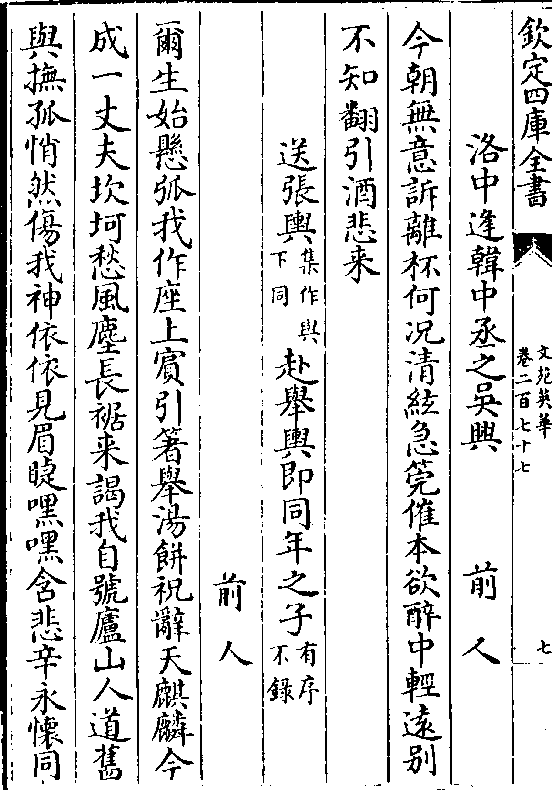 欽定四庫全書
文苑英華
卷二百七十七
七
洛中逢韓中丞之吳興 前人
今朝無意訴離杯何况清絃急筦催本欲醉中輕遠別
不知翻引酒悲来
送張輿集作與下同赴舉輿即同年之子有序不錄
前人
爾生始懸弧我作座上賓引箸舉湯餅祝辭天麒麟今
成一丈夫坎坷愁風塵長裾来謁我自號廬山人道舊
與撫孤悄然傷我神依依見眉睫嘿嘿含悲辛永懷同